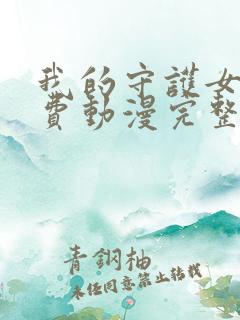 我的守護女
費動漫完整
青鋼柚
未经同意禁止转载